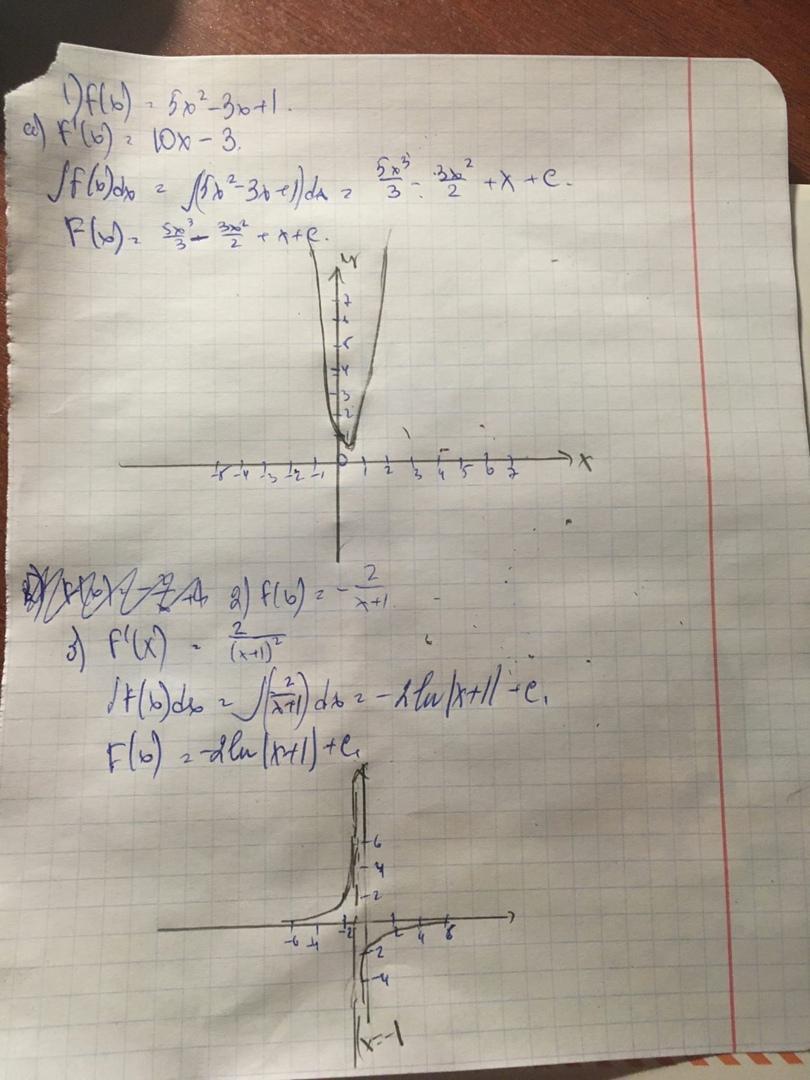 1) f(x) = 5x² - 3x + 1.
a) F'(x) = 10x - 3.
∫f(x)dx = ∫(5x² - 3x + 1)dx = 5x³/3 - 3x²/2 + x + C.
F(x) = 5x³/3 - 3x²/2 + x + C.
y
7
6
5
4
3
2
1
0
-5 -4 -3 -2 -1 1 2 3 4 5 6 7 x
2) f(x) = - 2/(x+1)
3) F'(x) = 2/(x+1)²
∫f(x)dx = ∫(2/(x+1))dx = -2ln|x+1| + C,
F(x) = -2ln|x+1| + C,
6
4
2
-6 -4 -2 2 4 6
-2
-4
x=-1